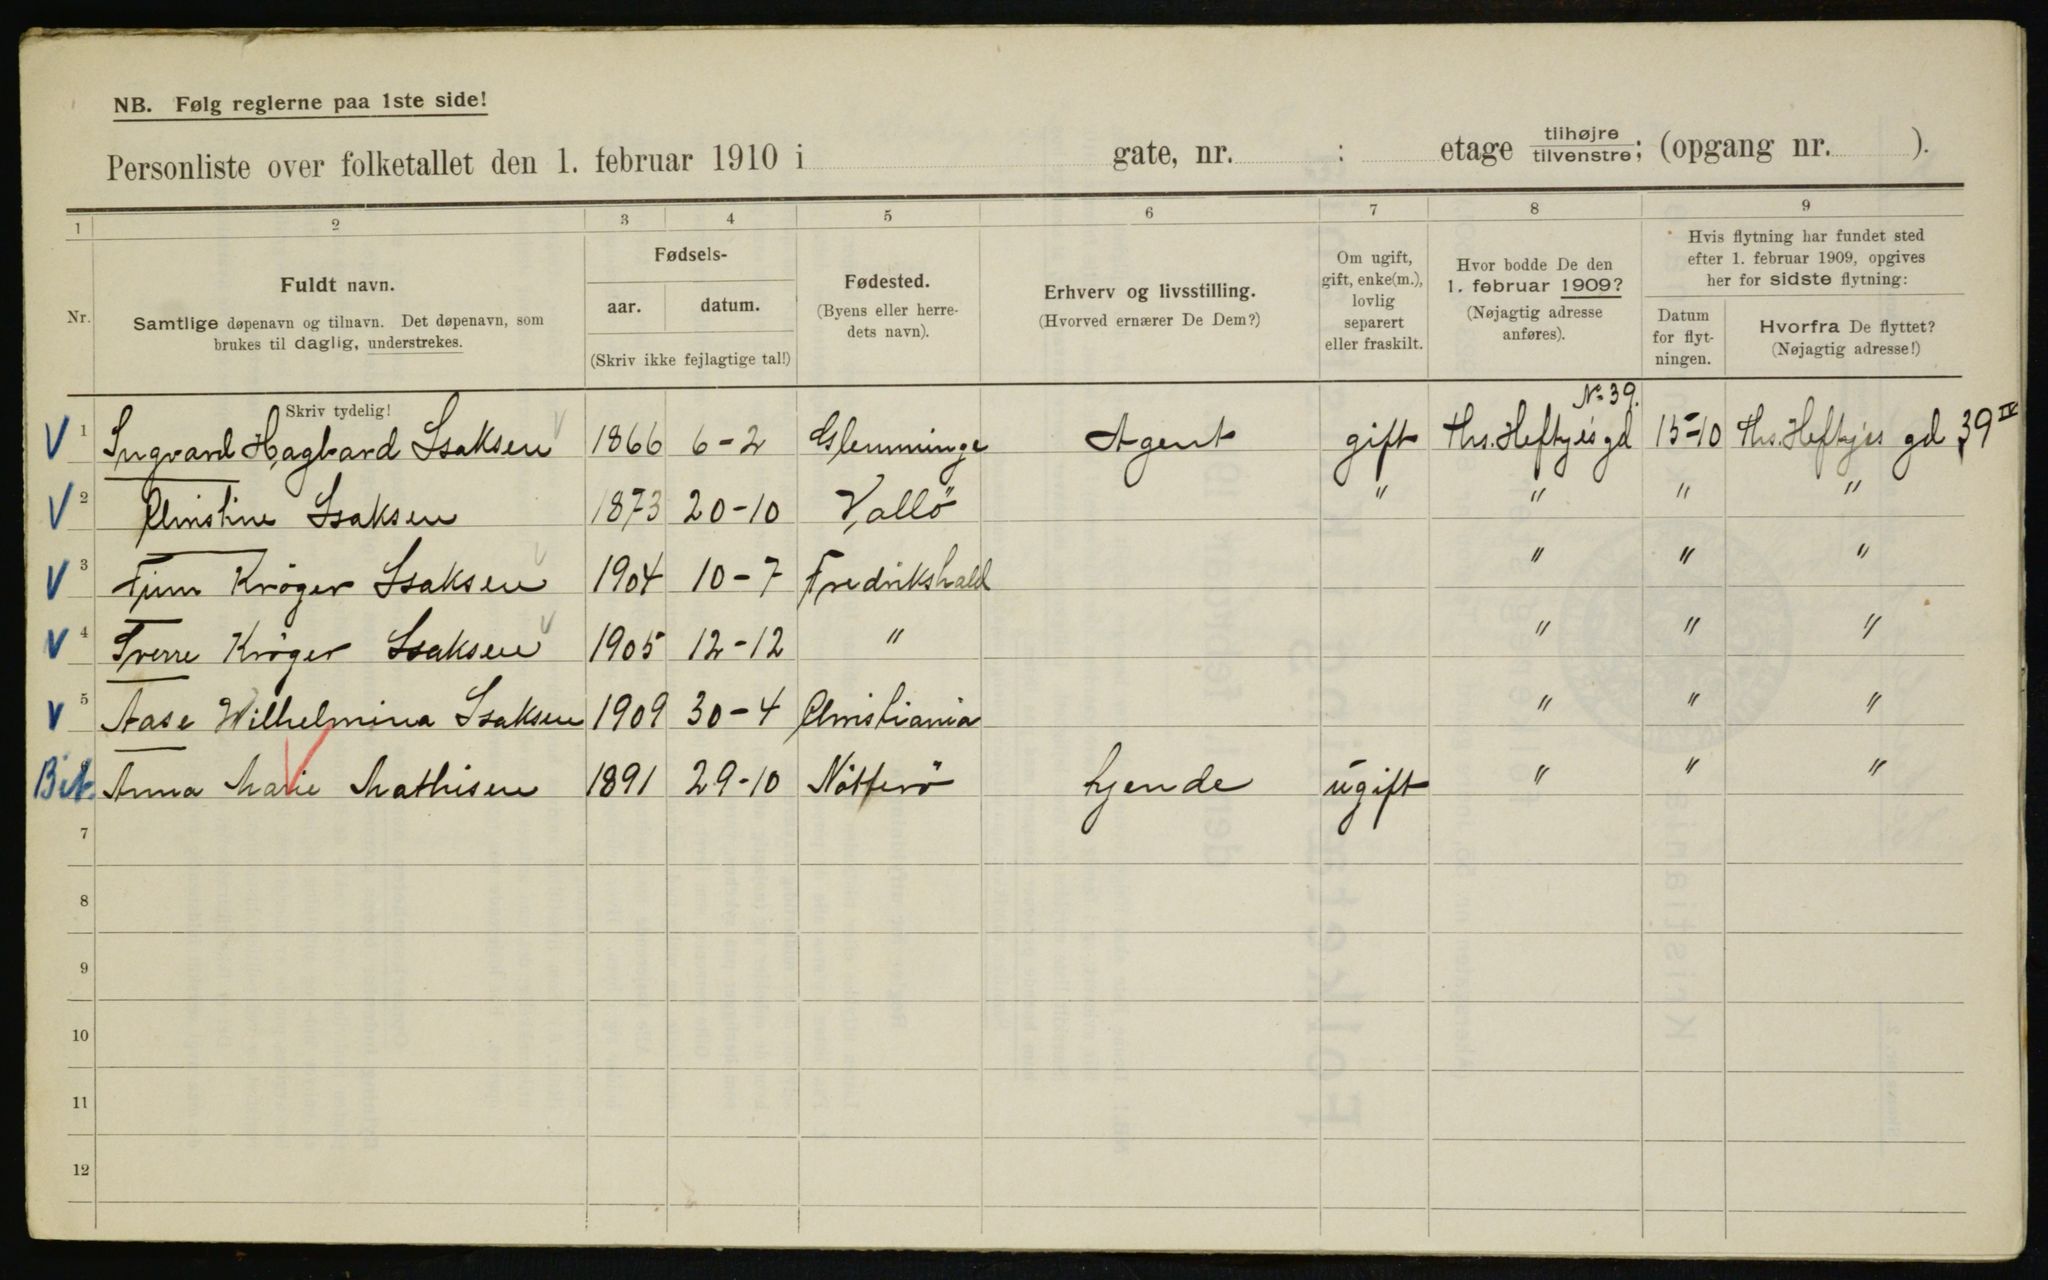 NB. Følg reglerne paa 1ste side!
Personliste over folketallet den 1. februar 1910 i gate, nr. : etage tilhøjre/tilvenstre; (opgang nr. ).
1 2 3 4 5 6 7 8 9
Nr.
Fuldt navn.
Samtlige døpenavn og tilnavn. Det døpenavn, som
brukes til daglig, understrekes.
Skriv tydelig!
Fødsels-
aar. datum.
(Skriv ikke fejlagtige tal!)
Fødested.
(Byens eller herre-
dets navn).
Erhverv og livsstilling.
(Hvorved ernærer De Dem?)
Om ugift,
gift, enke(m.),
lovlig
separert
eller fraskilt.
Hvor bodde De den
1. februar 1909?
(Nøjagtig adresse
anføres).
Hvis flytning har fundet sted
efter 1. februar 1909, opgives
her for sidste flytning:
Datum
for flyt-
ningen.
Hvorfra De flyttet?
(Nøjagtig adresse!)
No 39.
V 1 Ingvard Hagbard Isaksen 1866 6-2 Glemminge Agent gift Ths. Heftyes gd 15-10 Ths. Heftyes gd 39 IV
V 2 Christine Isaksen 1873 20-10 Vallö " " " "
V 3 Finn Kröger Isaksen 1904 10-7 Fredrikshald " " "
V 4 Sverre Kröger Isaksen 1905 12-12 " " " "
V 5 Aase Wilhelmina Isaksen 1909 30-4 Christiania " " "
Anna Marie Mathisen 1891 29-10 Nötterö tjende ugift " " "
7
8
9
10
11
12